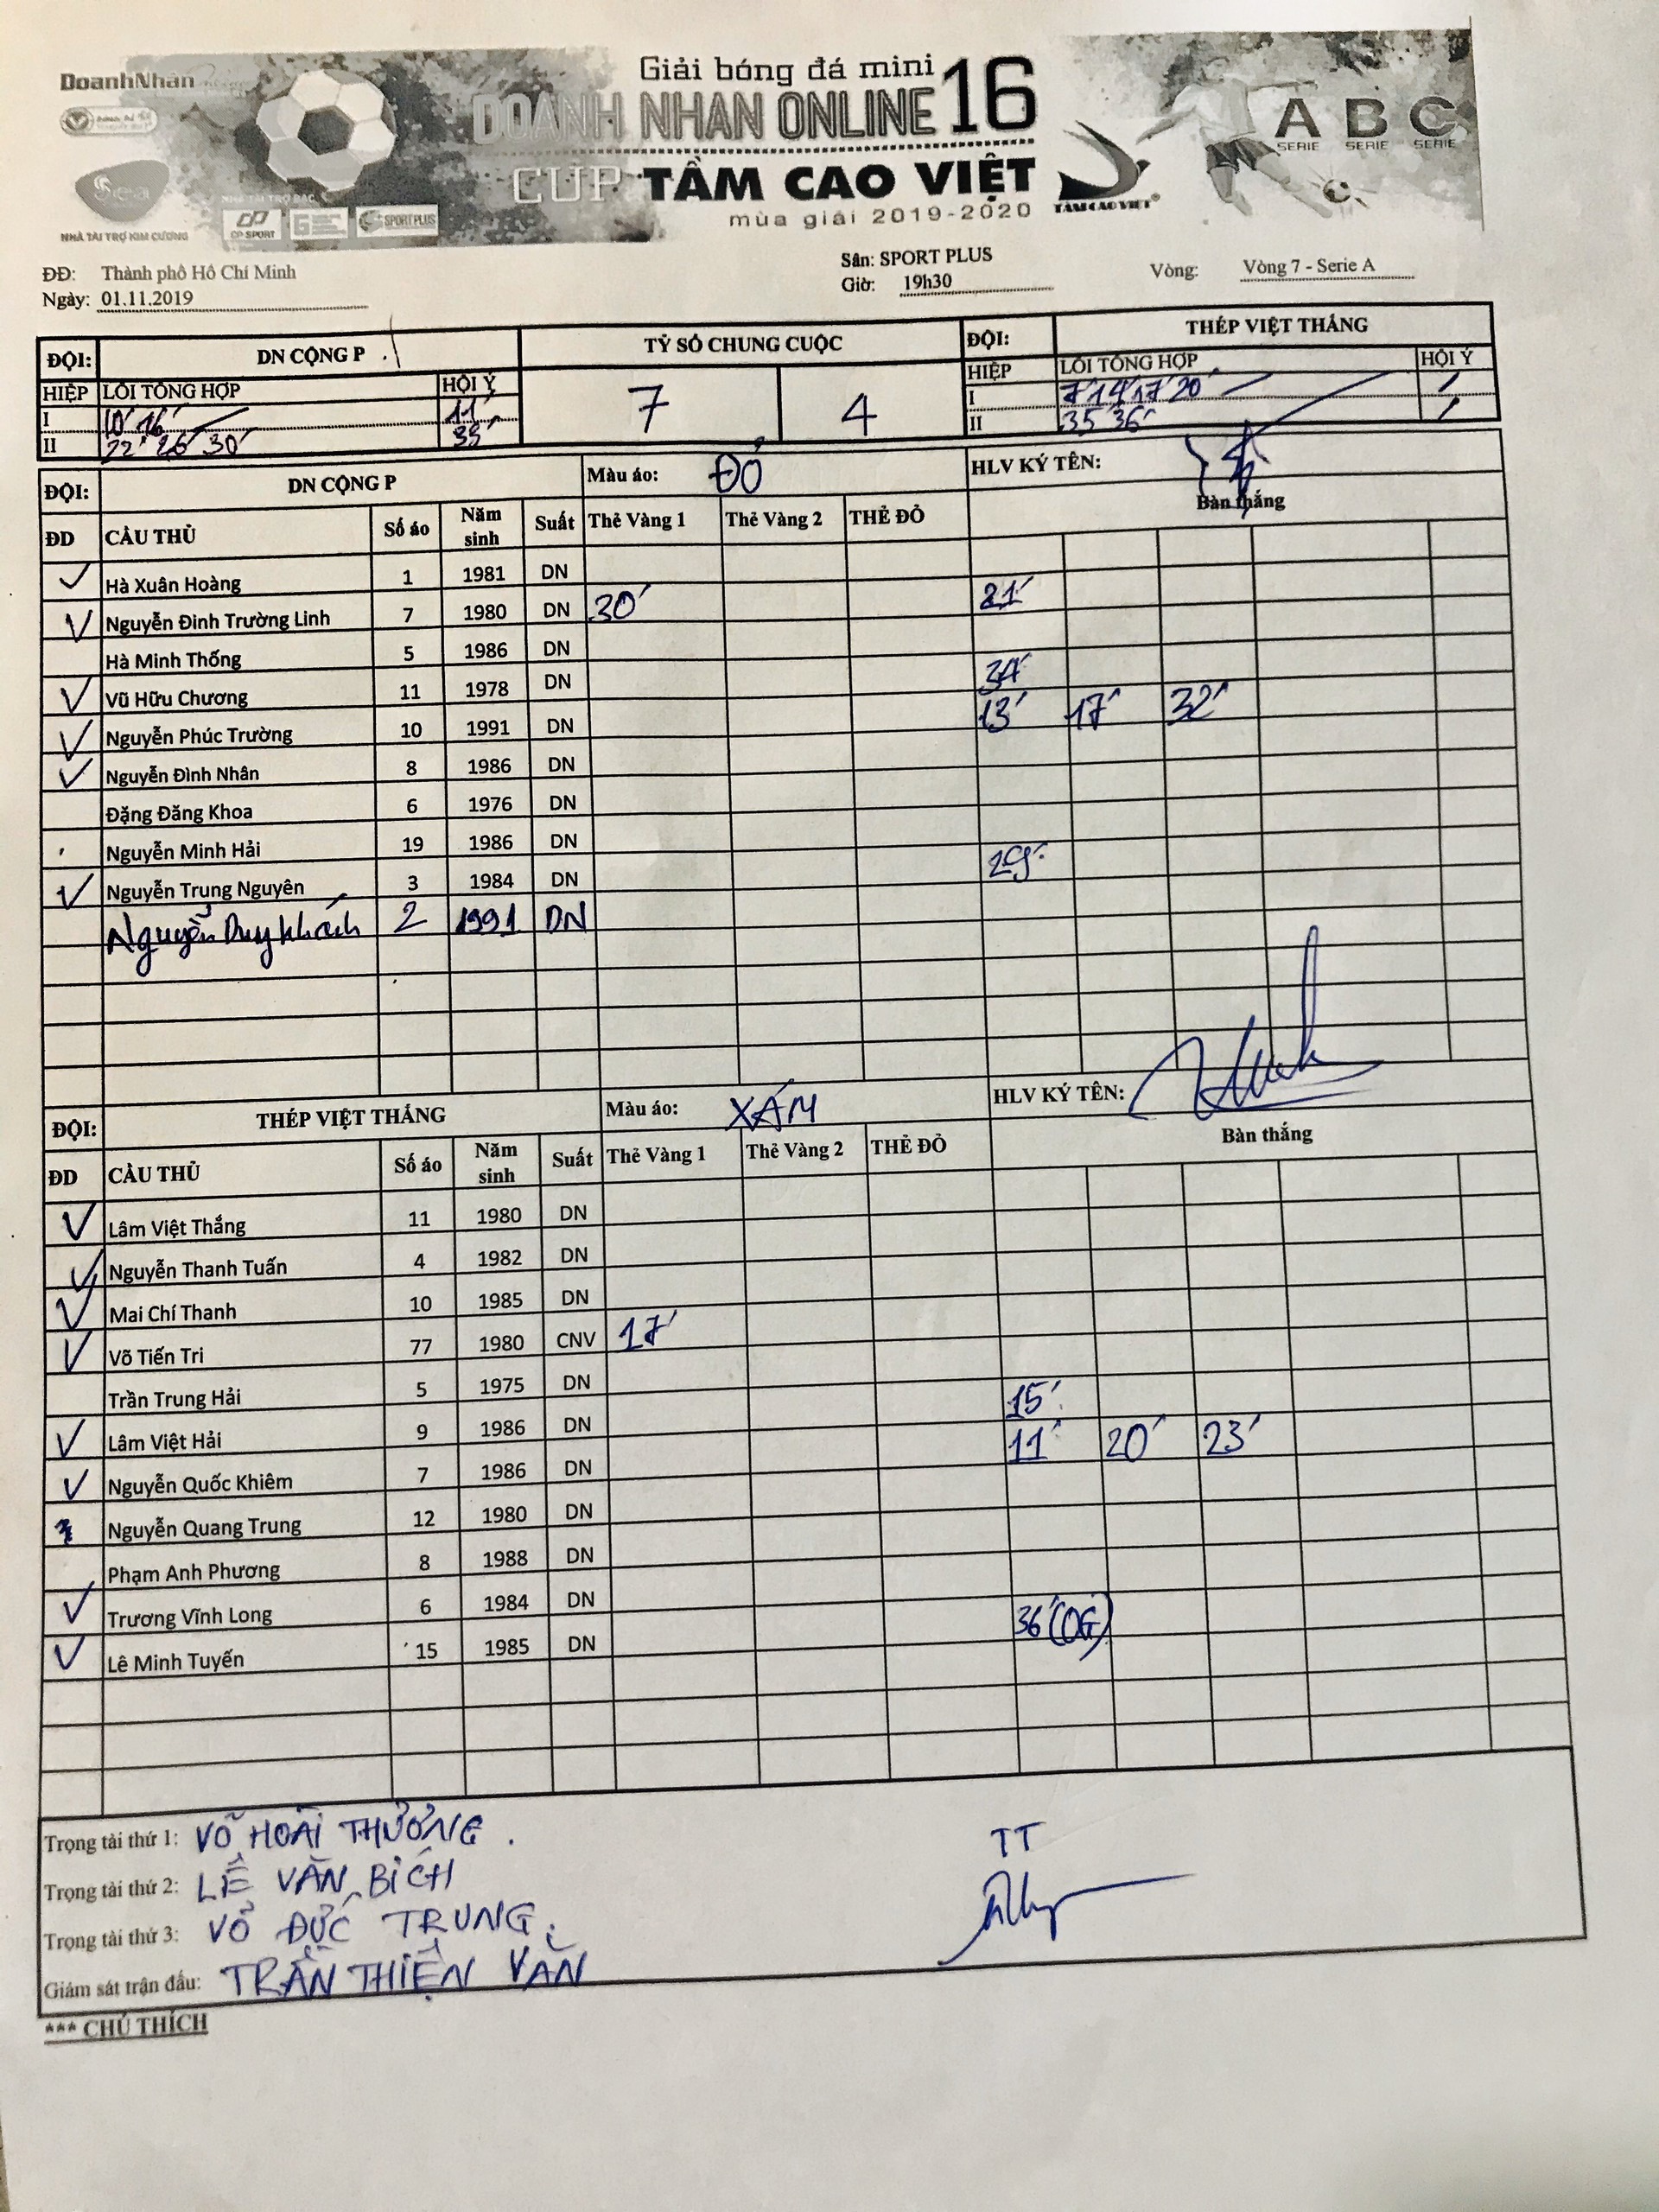 DoanhNhan
Giải bóng đá mini
DOANH NHAN ONLINE 16
CUP TẦM CAO VIỆT
mùa giải 2019-2020
TẦM CAO VIỆT®
A B C
SERIE SERIE SERIE
NHÀ TÀI TRỢ BẠC
CP SPORT SPORT PLUS
NHÀ TÀI TRỢ KIM CƯƠNG
ĐĐ: Thành phố Hồ Chí Minh Sân: SPORT PLUS Vòng: Vòng 7 - Serie A
Ngày: 01.11.2019 Giờ: 19h30
ĐỘI: DN CỘNG P TỶ SỐ CHUNG CUỘC ĐỘI: THÉP VIỆT THẮNG
HIỆP LỖI TỔNG HỢP HỘI Ý 7 4 HIỆP LỖI TỔNG HỢP HỘI Ý
I 10' 16' 11' I 7' 14' 17' 20'
II 22' 26' 30' 35' II 35' 36'
ĐỘI: DN CỘNG P Màu áo: ĐỎ HLV KÝ TÊN:
ĐD CẦU THỦ Số áo Năm sinh Suất Thẻ Vàng 1 Thẻ Vàng 2 THẺ ĐỎ Bàn thắng
Hà Xuân Hoàng 1 1981 DN
Nguyễn Đinh Trường Linh 7 1980 DN 30' 21'
Hà Minh Thống 5 1986 DN
Vũ Hữu Chương 11 1978 DN 34'
Nguyễn Phúc Trường 10 1991 DN 13' 17' 32'
Nguyễn Đình Nhân 8 1986 DN
Đặng Đăng Khoa 6 1976 DN
Nguyễn Minh Hải 19 1986 DN
Nguyễn Trung Nguyên 3 1984 DN 29'
Nguyễn Duy Khánh 2 1991 DN
ĐỘI: THÉP VIỆT THẮNG Màu áo: XÁM HLV KÝ TÊN:
ĐD CẦU THỦ Số áo Năm sinh Suất Thẻ Vàng 1 Thẻ Vàng 2 THẺ ĐỎ Bàn thắng
Lâm Việt Thắng 11 1980 DN
Nguyễn Thanh Tuấn 4 1982 DN
Mai Chí Thanh 10 1985 DN
Võ Tiến Tri 77 1980 CNV 17'
Trần Trung Hải 5 1975 DN
Lâm Việt Hải 9 1986 DN 15'
Nguyễn Quốc Khiêm 7 1986 DN 11' 20' 23'
Nguyễn Quang Trung 12 1980 DN
Phạm Anh Phương 8 1988 DN
Trương Vĩnh Long 6 1984 DN
Lê Minh Tuyến 15 1985 DN 36' (OG)
Trọng tài thứ 1: VÕ HOÀI THƯƠNG.
Trọng tài thứ 2: LÊ VĂN BÍCH
Trọng tài thứ 3: VÕ ĐỨC TRUNG.
Giám sát trận đấu: TRẦN THIỆN VĂN
TT
*** CHÚ THÍCH